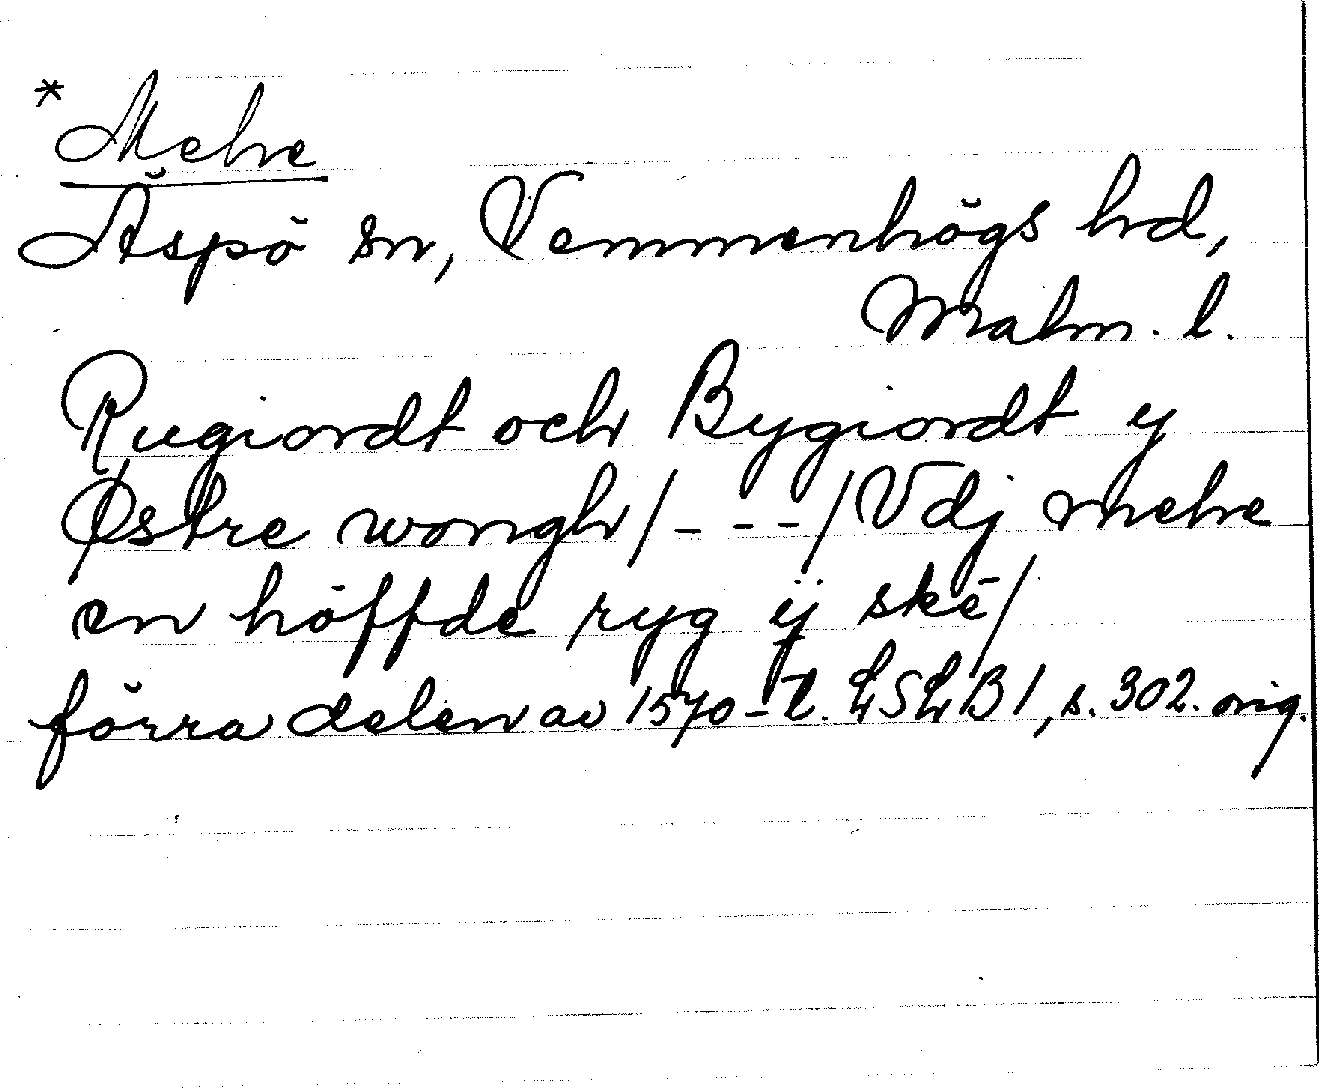 *Mehre
Äspö sn, Vemmenhögs hd,
Malm. l.
Rugiordt och Bygiordt y
Østre wongh/---/Vdj mehre
en höffde ryg ÿ ske/
förra delen av 1570-t. LSLB 1, s. 302. orig.